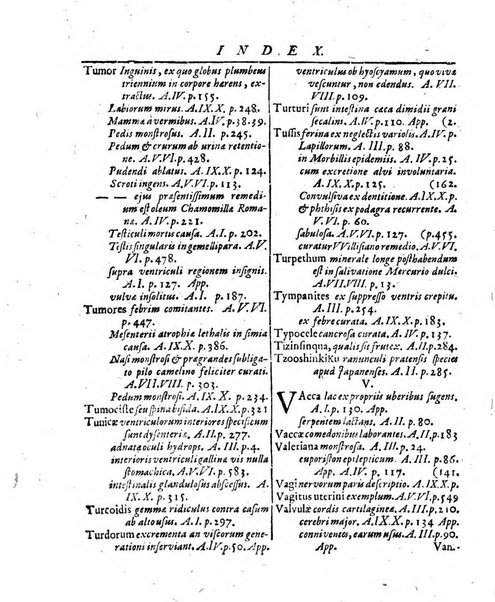 INDEX.
Tumor Inguinis, ex quo globus plumbeus
triennium in corpore hærens, ex-
tractus. A. IV. p. 155.
Labiorum mirus. A. IX. X. p. 248.
Mammæ à vermibus. A. IV. p. 38. 39.
Pedis monstrosus. A. II. p. 245.
Pedum & crurum ab urina retentio-
ne. A. V. VI. p. 428.
Pudendi ablatus. A. IX. X. p. 124.
Scroti ingens. A. V. VI. p. 113.
— — ejus præsentissimum remedi-
um est oleum Chamomilla Roma-
na. A. IV. p. 221.
Testiculi mortis causa. A. I. p. 202.
Testis singularis in gemellipara. A. V.
VI. p. 478.
supra ventriculi regionem insignis.
A. I. p. 127. App.
vulvæ insolitus. A. I. p. 187.
Tumores febrim comitantes. A. V. VI.
p. 447.
Mesenterii atrophiæ lethalis in simia
causa. A. IX. X. p. 386.
Nasi monstrosi & prægrandes subliga-
to pilo camelino feliciter curati.
A. VII. VIII. p. 303.
Pedum monstrosi. A. IX. X. p. 234.
Tumoctste seu spina bifida. A. IX. X. p. 321
Tunicæ ventriculorum interiores species
sunt dysenteriæ. A. II. p. 277.
adnatæ oculi hydrops. A. III. p. 4.
interioris ventriculi gallina vis nulla
stomachica. A. V. VI. p. 583.
intestinalis glandulosus abscessus. A.
IX. X. p. 315.
Turcoidis gemmæ ridiculus contra casum
ab alto usus. A. I. p. 297.
Turdorum excrementa an viscorum gene-
rationi inserviant. A. IV. p. 50. App.
ventriculus ob hyoscyamum, quo viva
vescuntur, non edendus. A. VII.
VIII. p. 109.
Turturi sunt intestina cæca dimidii grani
secalini. A. IV. p. 110. App. (2.
Tussis ferina ex neglectis variolis. A. IV. p.
Lapillorum. A. III. p. 88.
in Morbillis epidemiis. A. III. p. 76.
cum excretione alvi involuntaria.
A. IX. X. p. 125. (162.
Convulsiva ex dentitione. A. IX. X. p.
& phthisis ex podagra recurrente. A.
V. VI. p. 60.
sabulosa. A. V. VI. p. 127. (p. 455.
curatur VVillisiano remedio. A. V. VI.
Turpethum minerale longe posthabendum
est in salivatione Mercurio dulci.
A. VII. VIII. p. 13.
Tympanites ex suppresso ventris crepitu.
A. III. p. 254.
ex febre curata. A. IX. X. p. 183.
Typocce lancrestis curata. A. IV. p. 137.
Tzinsinqua, qualis sit frutex. A. II. p. 284.
Tzooshinkiku ranunculi pratensis species
apud Japanenses. A. II. p. 285.
V.
VAcca lac ex propriis uberibus sugens.
A. I. p. 130. App.
serpentem lactans. A. II. p. 80.
Vaccæ comedonibus laborantes. A. I. p. 83
Valeriana monstrosa. A. II. p. 134.
ejus pulvis antiepilepticus. A. III. p. 86.
euporiston epilepticum. A. III. p. 86.
App. A. IV. p. 117. (141.
Vagi nervorum paris descriptio. A. IX. X. p.
Vagitus uterini exemplum. A. V. VI. p. 549
Valvulæ cordis cartilagineæ. A. IX. X. p.
cerebri major. A. IX. X. p. 134 App
conniventes, earum usus. A. III. p. 90.
App. Van-